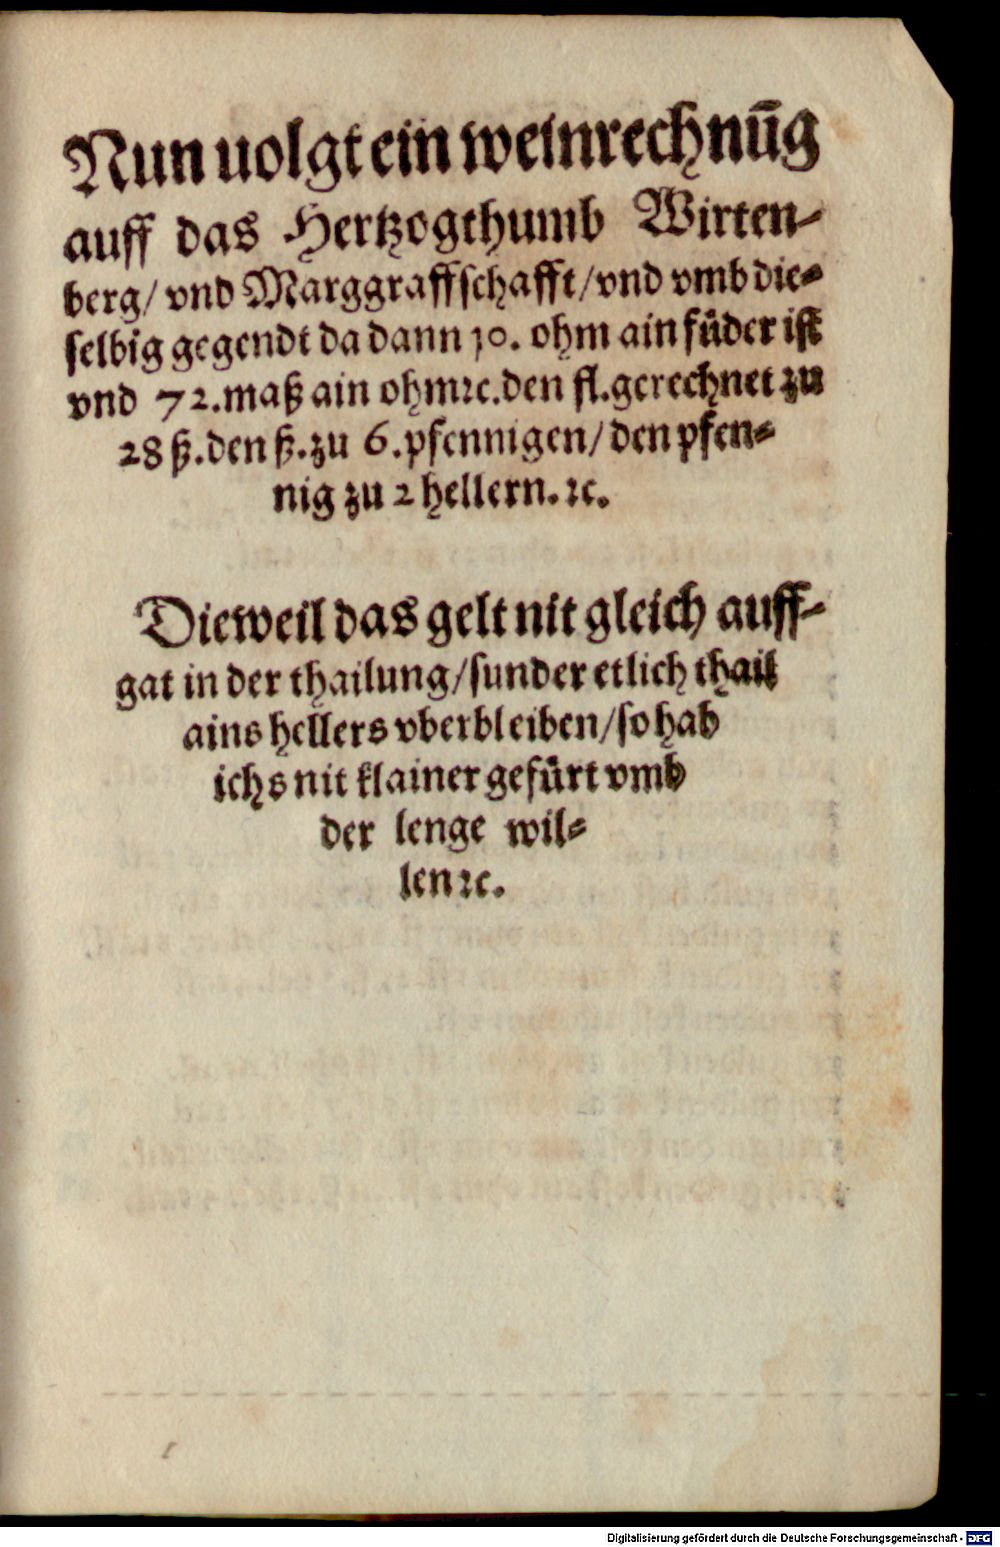 Nun uolgt ein weinrechnūg
auff das Hertzogthumb Wirten-
berg/ vnd Marggraffschafft/ vnd vmb die-
selbig gegendt da dann 10. ohm ain fůder ist
vnd 72. maß ain ohm ꝛc. den fl. gerechnet zu
28 ß. den ß. zu 6. pfennigen/ den pfen-
nig zu 2 hellern. ꝛc.
Dieweil das gelt nit gleich auff-
gat in der thailung/ sunder etlich thail
ains hellers vberbleiben/ so hab
ichs nit klainer gefürt vmb
der lenge wil-
len ꝛc.
Digitalisierung gefördert durch die Deutsche Forschungsgemeinschaft - DFG